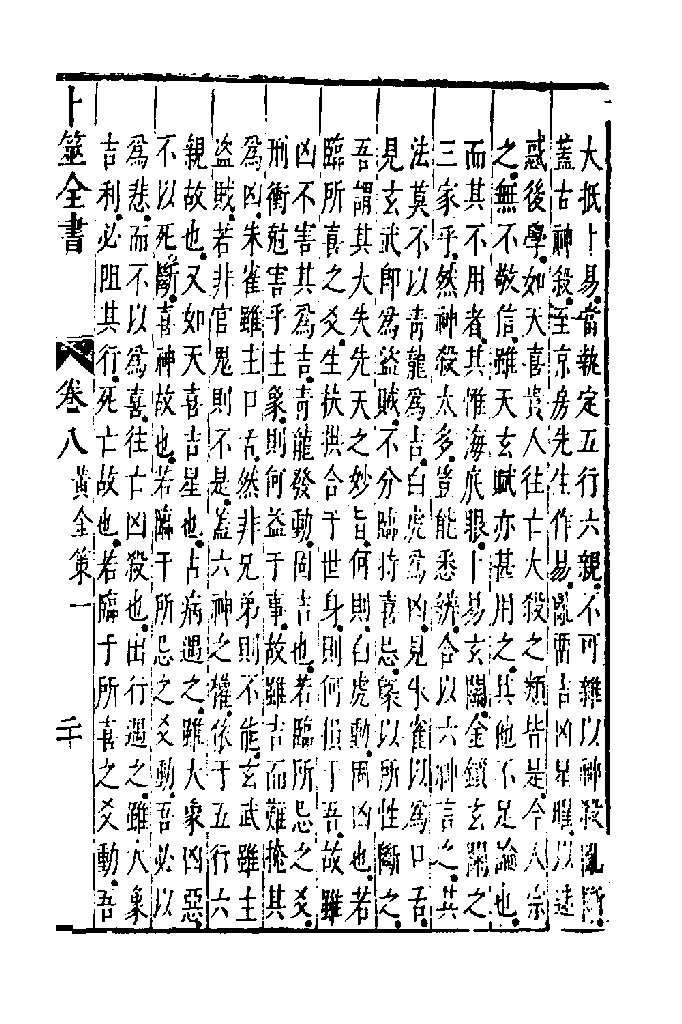 大抵卜易當執定五行六親不可雜以神殺亂斷
蓋古神殺至京房先生作易亂留吉凶星曜以迷
惑後學如天喜貴人往亡大殺之類皆是今人宗
之無不敬信雖天玄賦亦甚用之其他不足論也
而其不用者其惟海底眼卜易玄關金鎖玄關之
三家乎然神殺太多豈能悉辨合以六神言之其
法莫不以青龍爲吉白虎爲凶見朱雀以爲口舌
見玄武即爲盜賊不分臨持喜忌槩以所性斷之
吾謂其大失先天之妙旨何則白虎動固凶也若
臨所喜之爻生扶拱合于世身則何損于吾故雖
凶不害其爲吉青龍發動固吉也若臨所忌之爻
刑衝尅害乎主象則何益于事故雖吉而難掩其
爲凶朱雀雖主口舌然非兄弟則不能玄武雖主
盜賊若非官鬼則不是蓋六神之權依于五行六
親故也又如天喜吉星也占病遇之雖大象凶惡
不以死斷喜神故也若臨于所忌之爻動吾必以
爲悲而不以爲喜往亡凶殺也出行遇之雖大象
吉利必阻其行死亡故也若臨于所喜之爻動吾
卜筮全書 卷八 黃金策一 二十